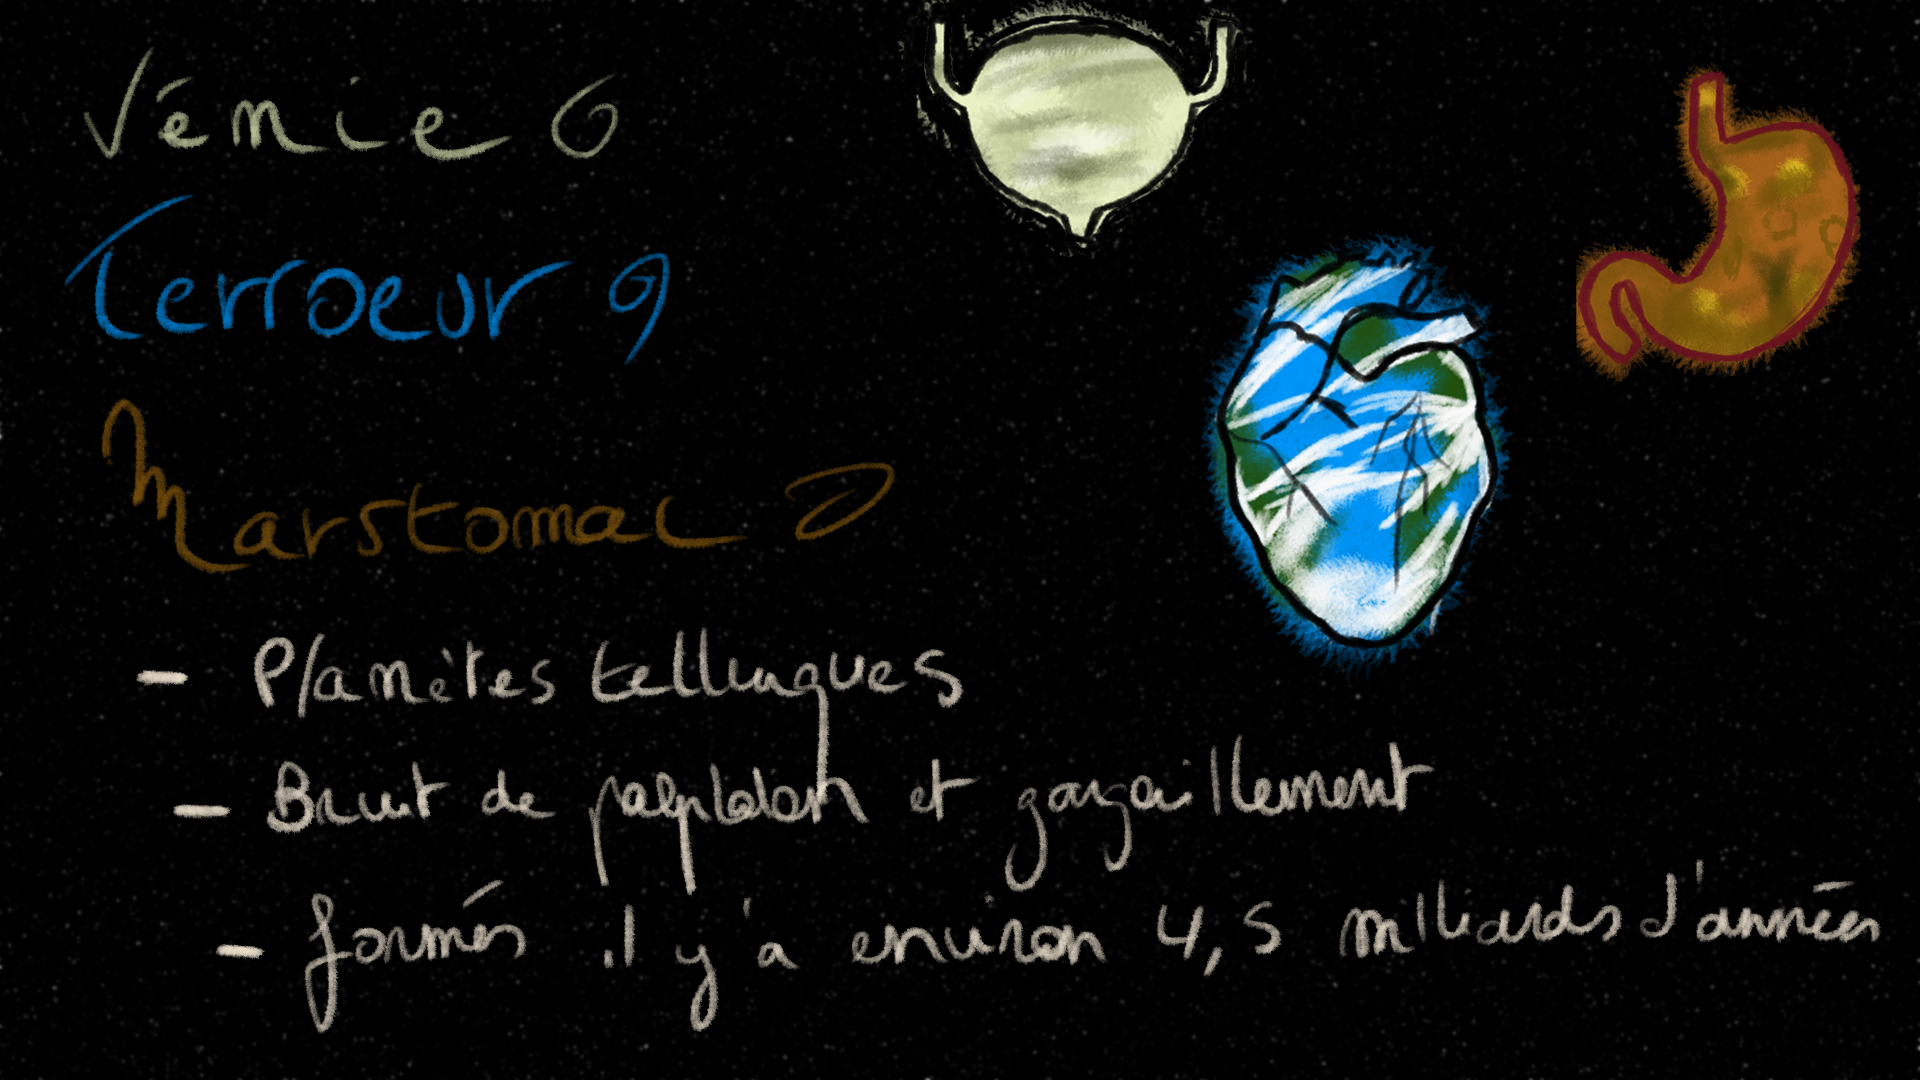 Vénie 6
Terroeur 9
Marstomac
- Planètes telluriques
- Bruit de palpitation et
- formés il y'a environ 4,5 milliards d'années